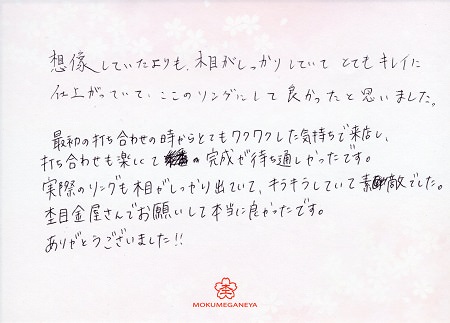 想像していたよりも、木目がしっかりしていて とてもキレイに
仕上がっていて、ここのリングにして良かったと思いました。
最初の打ち合わせの時からとてもワクワクした気持ちで来店し、
打ち合わせも楽しくて 完成が待ち通しかったです。
実際のリングも木目がしっかり出ていて、キラキラしていて素敵でした。
杢目金屋さんでお願いして本当に良かったです。
ありがとうございました!!
杢
MOKUMEGANEYA